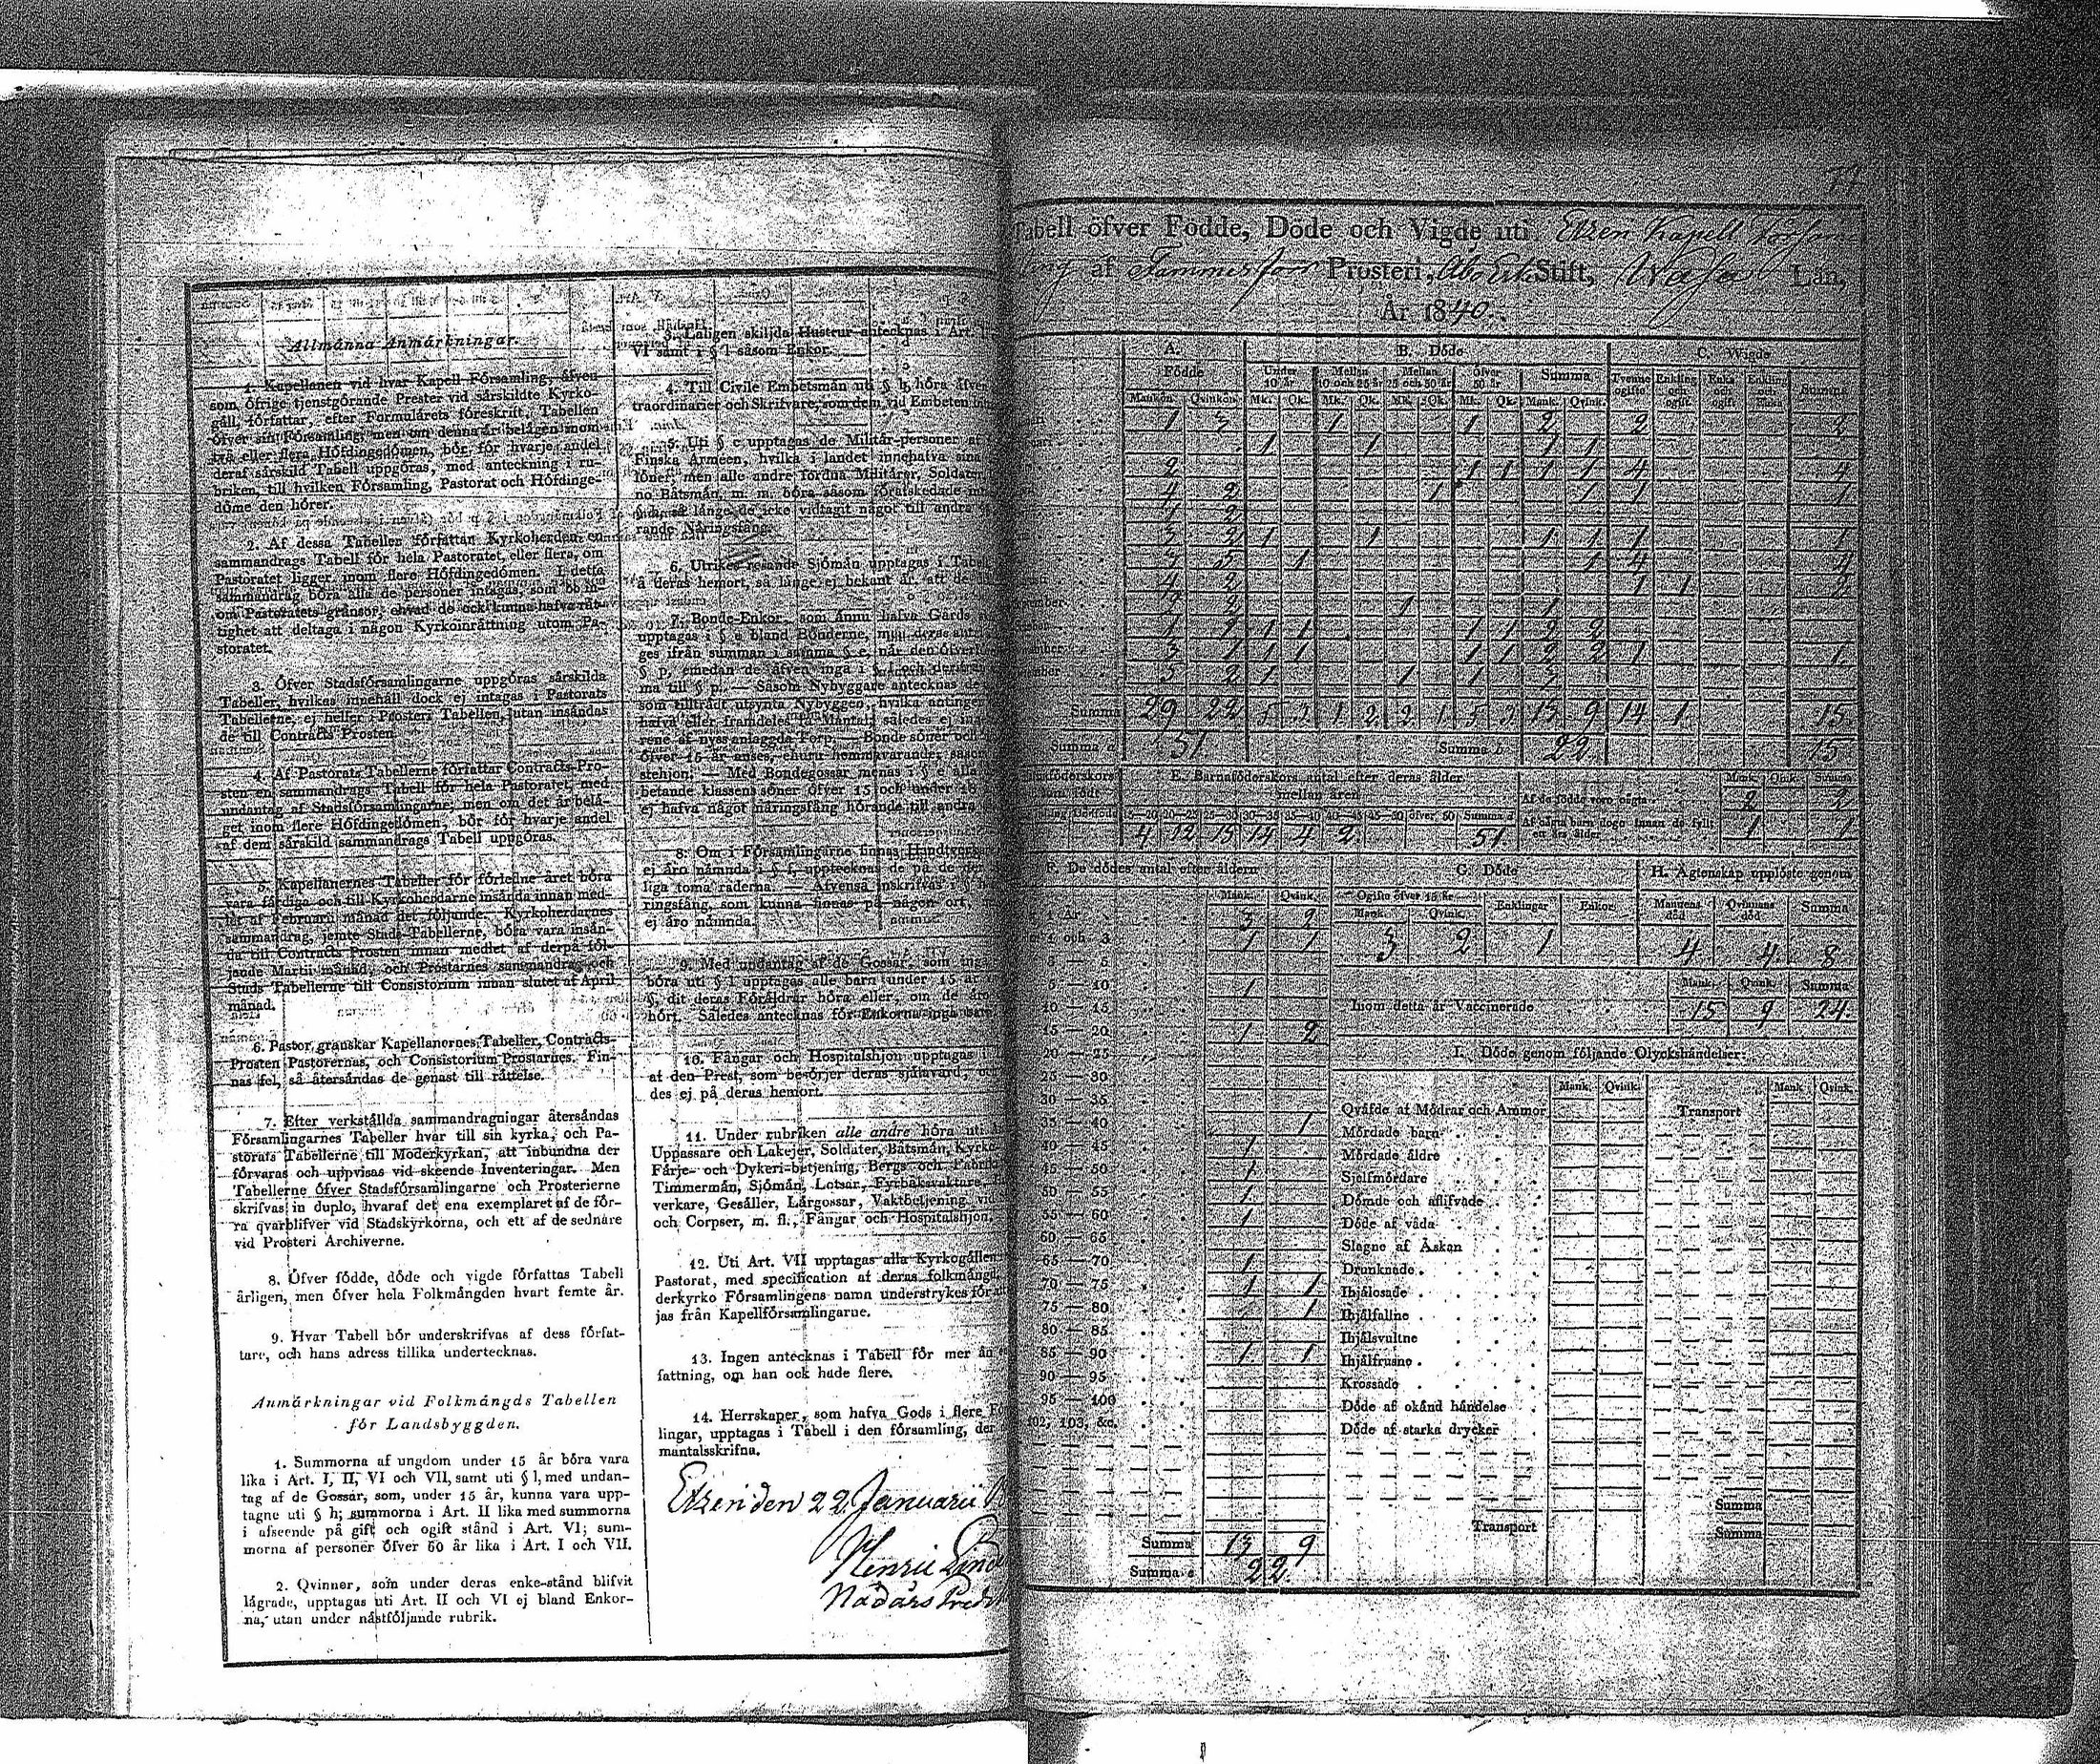 Allmänna Anmärkningar.
1. Kapellanen vid hvar Kapell Församling, äfven
som öfrige tjenstgörande Prester vid särskildte Kyrko-
gäll, författar, efter Formulärets föreskrift, Tabellen
öfver sin Församling; men om denna är belägen inom
två eller flera Höfdingedömen, bör för hvarje andel
deraf särskild Tabell uppgöras, med anteckning i ru-
briken, till hvilken Församling, Pastorat och Höfdinge-
döme den hörer.
2. Af dessa Tabeller författar Kyrkoherden en
sammandrags Tabell för hela Pastoratet, eller flera, om
Pastoratet ligger inom flere Höfdingedömen. I detta
sammandrag böra alla de personer intagas, som bo in-
om Pastoratets gränsor, ehvad de ock kunna hafva rät-
tighet att deltaga i någon Kyrkoinrättning utom Pa-
storatet.
3. Öfver Stadsförsamlingarne uppgöras särskilda
Tabeller, hvilkas innehåll dock ej intagas i Pastorats
Tabellerne, ej heller i Prosteri Tabellen, utan insändas
de till Contracts Prosten.
4. Af Pastorats Tabellerne författar Contracts Pro-
sten en sammandrags Tabell för hela Pastoratet, med
undantag af Stadsförsamlingarne; men om det är belä-
get inom flere Höfdingedömen, bör för hvarje andel
af dem särskild sammandrags Tabell uppgöras.
5. Kapellanernes Tabeller för förledne året böra
vara färdiga och till Kyrkoherdarne insända innan med-
let af Februarii månad det följande. Kyrkoherdarnes
sammandrag, jemte Stads-Tabellerne, böra vara insän-
da till Contracts Prosten innan medlet af derpå föl-
jande Martii månad, och Prostarnes sammandrag och
Stads Tabellerne till Consistorium innan slutet af April
månad.
6. Pastor granskar Kapellanernes Tabeller, Contracts-
Prosten Pastorernas, och Consistorium Prostarnes. Fin-
nas fel, så återsändas de genast till rättelse.
7. Efter verkställda sammandragningar återsändas
Församlingarnes Tabeller hvar till sin kyrka, och Pa-
storats Tabellerne till Moderkyrkan, att inbundna der
förvaras och uppvisas vid skeende Inventeringar. Men
Tabellerne öfver Stadsförsamlingarne och Prosterierne
skrifvas in duplo, hvaraf det ena exemplaret af de för-
ra qvarblifver vid Stadskyrkorna, och ett af de sednare
vid Prosteri Archiverne.
8. Öfver födde, döde och vigde författas Tabell
årligen, men öfver hela Folkmängden hvart femte år.
9. Hvar Tabell bör underskrifvas af dess författ-
tare, och hans adress tillika undertecknas.
Anmärkningar vid Folkmängds Tabellen
för Landsbyggden.
1. Summorna af ungdom under 15 år böra vara
lika i Art. I, II, VI och VII, samt uti § l, med undan-
tag af de Gossar, som, under 15 år, kunna vara upp-
tagne uti § h; summorna i Art. II lika med summorna
i afseende på gift och ogift stånd i Art. VI; sum-
morna af personer öfver 60 år lika i Art. I och VII.
2. Qvinnor, som under deras enke-stånd blifvit
lägrade, upptagas uti Art. II och VI ej bland Enkor-
na, utan under nästföljande rubrik.
3. Lagligen skiljda Hustrur antecknas i Art.
VI samt i § l såsom Enkor.
4. Till Civile Embetsmän uti § b, höra äfven
traordinarier och Skrifvare, som dem vid Embeten
5. Uti § c upptagas de Militär-personer af
Finska Armeen, hvilka i landet innehafva sina
löner; men alle andre fordna Militärer, Soldater
no Båtsmän, m. m. böra såsom förafskedade
så länge de icke vidtagit något till andra
rande Näringsfång.
6. Utrikes resande Sjömän upptagas i Tabell
å deras hemort, så länge ej bekant är, att de
7. Bonde-Enkor, som ännu hafva Gårds
upptagas i § e bland Bönderne, men deras antal
ges ifrån summan i samma § e, när den öfverföres
§ p, emedan de äfven ingå i § l och derifrån
ma till § p. — Såsom Nybyggare antecknas de
som tillträdt utsynta Nybyggen, hvilka antingen
hafva eller framdeles få Mantal; således ej in
rene af nyss anlagde Torp. — Bonde söner och
öfver 15 år anses, ehuru hemmavarande, såsom
stehjon. — Med Bondegossar menas i § e alla
betande klassens söner öfver 15 och under 18
ej hafva något näringsfång hörande till andra
8. Om i Församlingarne finnas Handtverkare
ej äro nämnda i § f, uppteckna de på de
liga toma raderna. — Äfvenså inskrifvas i §
ringsfång, som kunna finnas på någon ort,
ej äro nämnda.
9. Med undantag af de Gossar, som ingå
böra uti § l upptagas alle barn under 15 år
§, dit deras Föräldrar höra eller, om de äro
hört. Således antecknas för Enkorna inga barn.
10. Fångar och Hospitalshjon upptagas i
af den Prest, som besörjer deras själavård, och
des ej på deras hemort.
11. Under rubriken alle andre höra uti
Uppassare och Lakejer, Soldater, Båtsmän, Kyrko
Färje- och Dykeri-betjening, Bergs och Fabriks
Timmermän, Sjömän, Lotsar, Fyrbåksvaktare,
verkare, Gesäller, Lärgossar, Vaktbetjening vid
och Corpser, m. fl., Fångar och Hospitalshjon.
12. Uti Art. VII upptagas alla Kyrkogällen
Pastorat, med specification af deras folkmängd,
derkyrko Församlingens namn understrykes för att
jas från Kapellförsamlingarne.
13. Ingen antecknas i Tabell för mer än en
fattning, om han ock hade flere.
14. Herrskaper, som hafva Gods i flere För
lingar, upptagas i Tabell i den församling, der
mantalsskrifna.
Etzeri den 22 Januarii
Henric Lind
Nådårs Pred
77
Tabell öfver Födde, Döde och Vigde uti Etzeri Kapell Försam
ling af Tammerfors Prosteri, Åbo Erke Stift, Wasa Län,
År 1840.
A. B. Döde C. Wigde
Födde Under 10 år Mellan 10 och 25 år Mellan 25 och 50 år Öfver 50 år Summa Tvenne ogifte Enkling och ogift Enka och ogift Enkling och Enka Summa
Mankön Qvinkön Mk. Qk. Mk. Qk. Mk. Qk. Mk. Qk. Mank. Qvink.
1 3 1 1 2 2 2
1 1 1 1
2 1 1 1 1 4 4
4 2 1 1 1 1
1 2
3 2 1 1 1 1 1 1
5 1 1 4 4
4 2 1 1 2
2 2 1 1
1 1 1 1 1 1 2 2
3 1 1 1 1 1 2 2 1 1
5 2 1 1 1 3
Summa 29 22 5 3 1 2 2 1 5 3 13 9 14 1 15.
Summa a 51. Summa b 22. 15
E. Barnaföderskors antal efter deras ålder
mellan åren
15—20 20—25 25—30 30—35 35—40 40—45 45—50 öfver 50 Summa d
4 12 15 14 4 2 51.
Mank. Qvink. Summa
Af de födde voro oägta 2 2
Af oägta barn dogo innan de fyllt
ett års ålder 1 1
F. De dödes antal efter åldern
Mank. Qvink.
1 år 3 2
1 och 3 1 1
3 — 5
5 — 10 1
10 — 15
15 — 20 1 2
20 — 25
25 — 30
30 — 35
35 — 40 1
40 — 45 1
45 — 50 1
50 — 55 1
55 — 60 1
60 — 65
65 — 70 1
70 — 75 1 1
75 — 80 1
80 — 85
85 — 90 1 1
90 — 95
95 — 100
102, 103, &c.
Summa 13 9
Summa e 22.
G. Döde
Ogifte öfver 15 år Enklingar Enkor
Mank. Qvink.
3 2 1
H. Ägtenskap upplöste genom
Mannens död Qvinnans död Summa
4 4 8
Mank. Qvink. Summa
Inom detta år Vaccinerade 15 9 24.
I. Döde genom följande Olyckshändelser:
Mank. Qvink. Mank. Qvink.
Qväfde af Mödrar och Ammor Transport
Mördade barn
Mördade äldre
Sjelfmördare
Dömde och aflifvade
Döde af våda
Slagne af Åskan
Drunknade
Ihjälosade
Ihjälfallne
Ihjälsvultne
Ihjälfrusne
Krossade
Döde af okänd händelse
Döde af starka drycker
Summa
Transport Summa